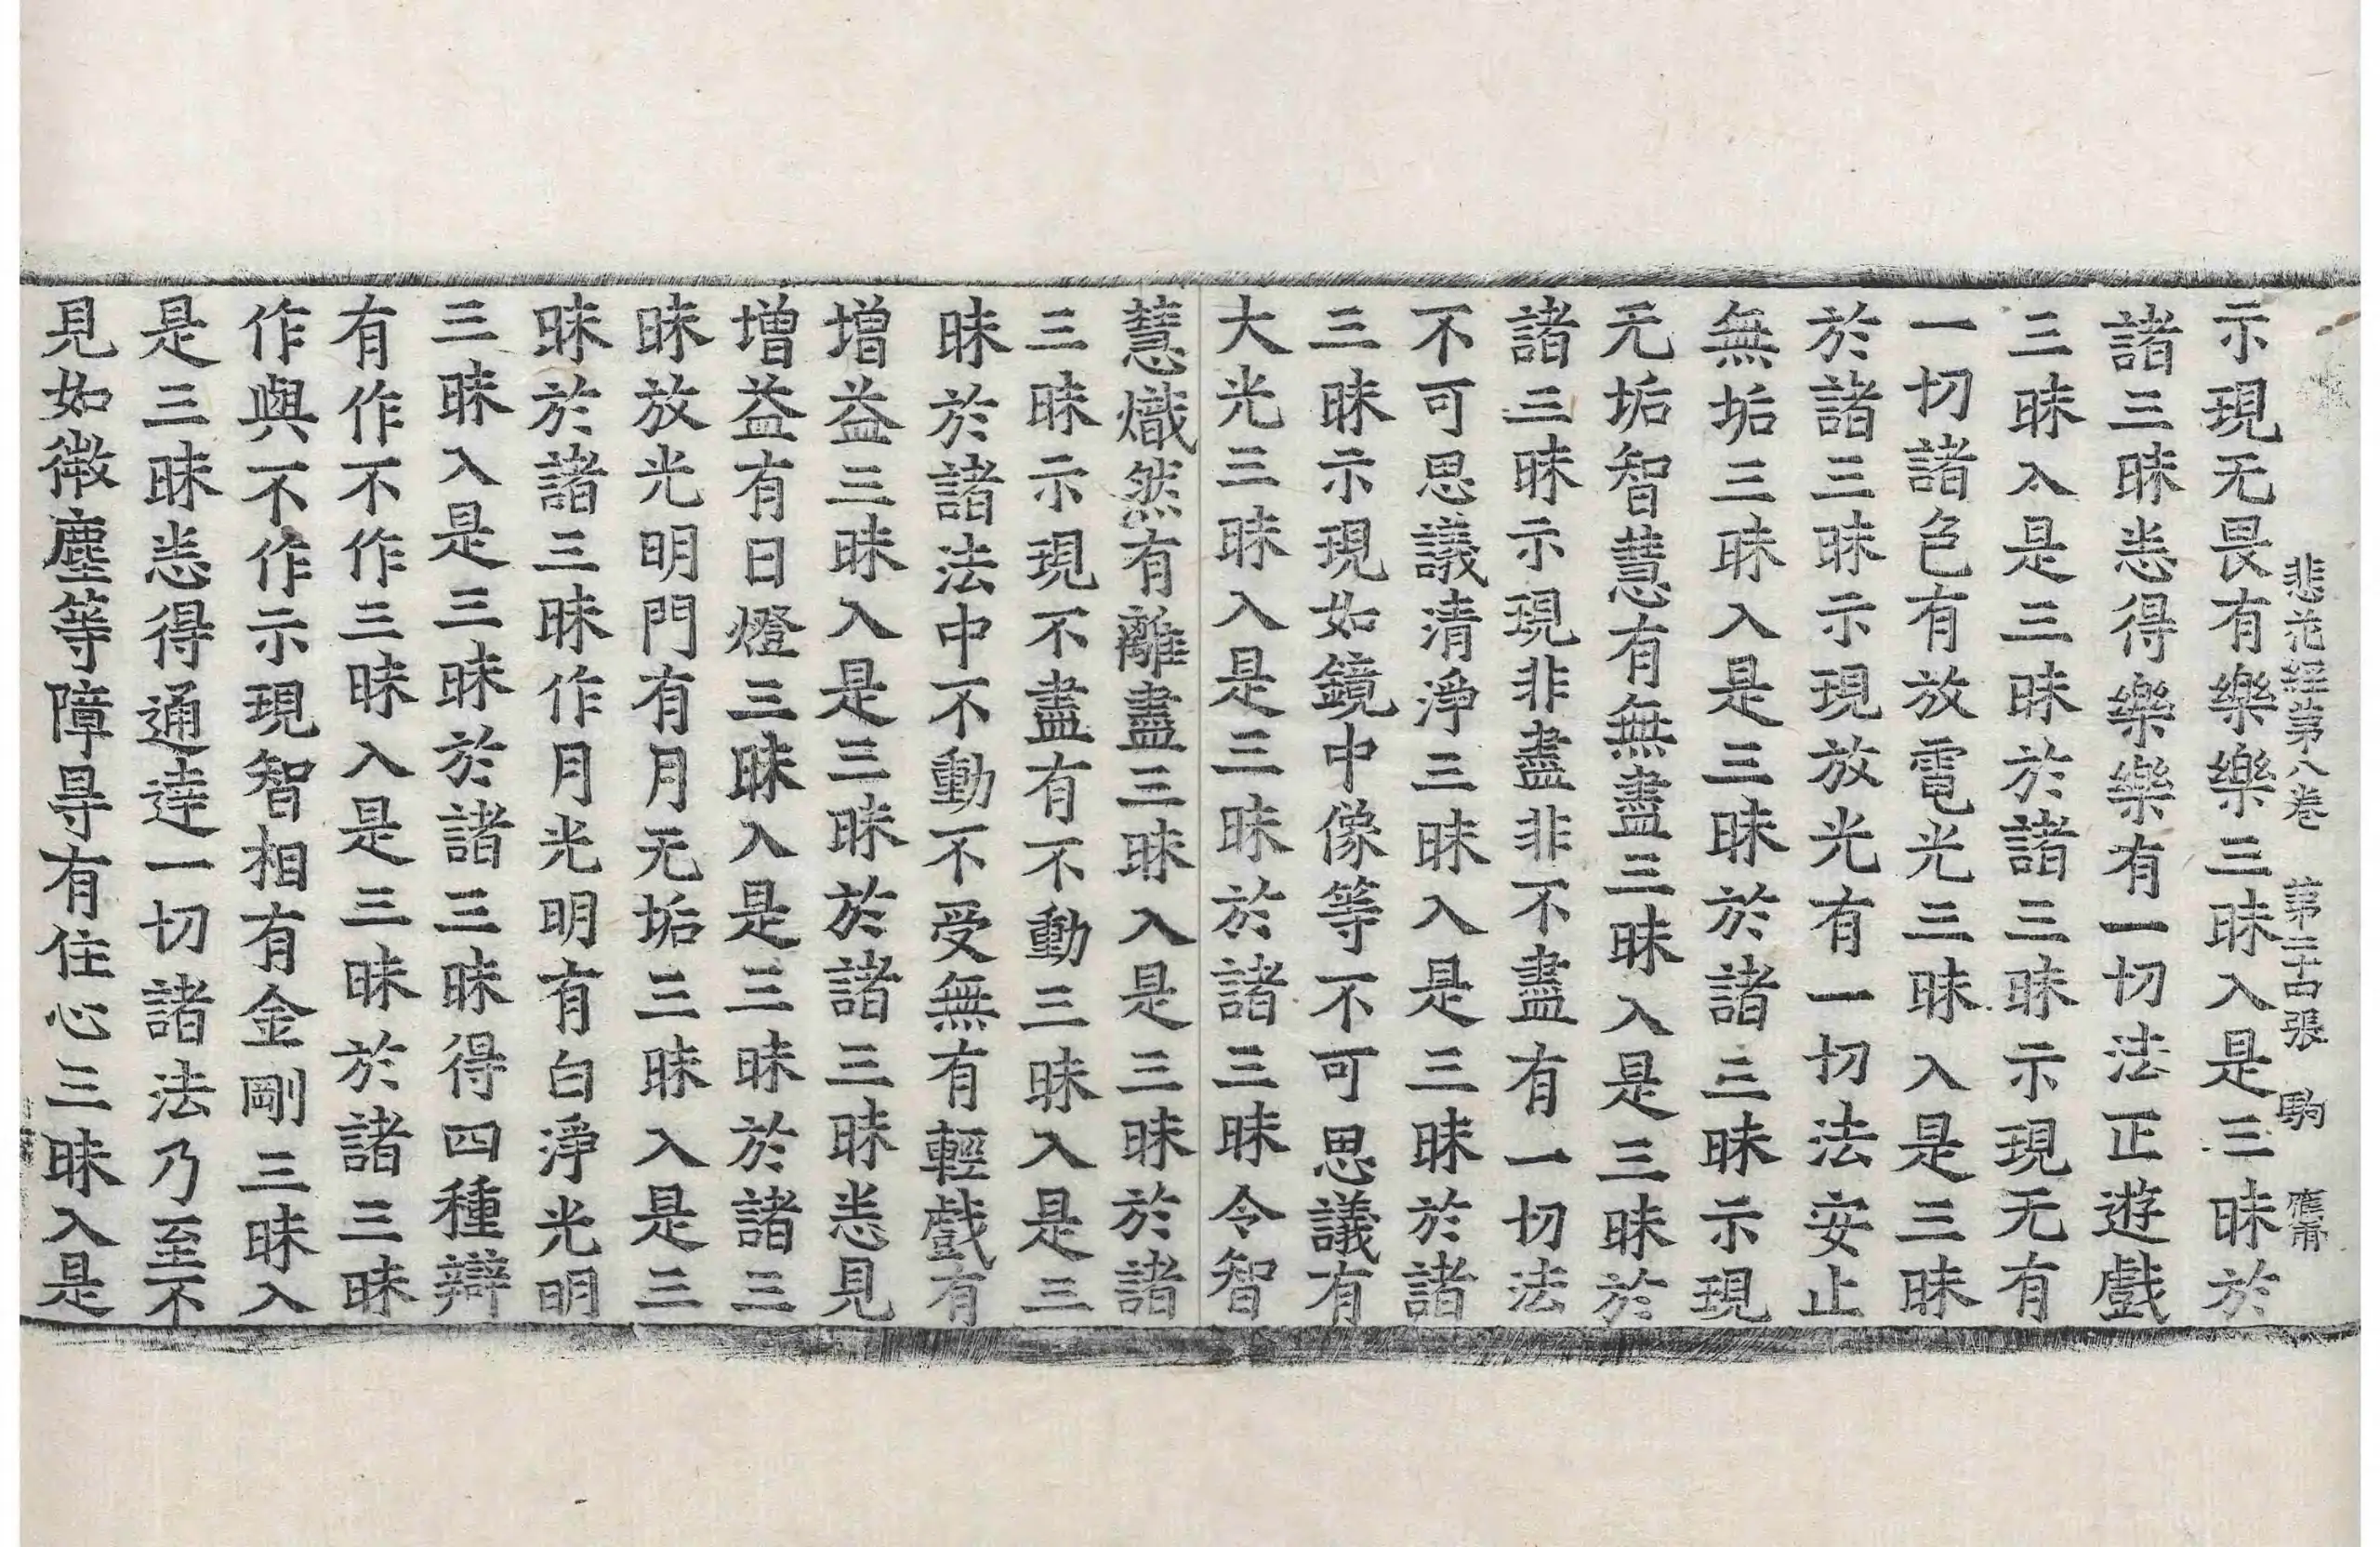 悲花經第八卷 第二十四張 駒
示現无畏有樂樂三昧入是三昧於
諸三昧悉得樂樂有一切法正遊戲
三昧入是三昧於諸三昧示現无有
一切諸色有放電光三昧入是三昧
於諸三昧示現放光有一切法安止
無垢三昧入是三昧於諸三昧示現
无垢智慧有無盡三昧入是三昧於
諸三昧示現非盡非不盡有一切法
不可思議清淨三昧入是三昧於諸
三昧示現如鏡中像等不可思議有
大光三昧入是三昧於諸三昧令智
慧熾然有離盡三昧入是三昧於諸
三昧示現不盡有不動三昧入是三
昧於諸法中不動不受無有輕戲有
增益三昧入是三昧於諸三昧悉見
增益有日燈三昧入是三昧於諸三
昧放光明門有月无垢三昧入是三
昧於諸三昧作月光明有白淨光明
三昧入是三昧於諸三昧得四種辯
有作不作三昧入是三昧於諸三昧
作與不作示現智相有金剛三昧入
是三昧悉得通達一切諸法乃至不
見如微塵等障㝵有住心三昧入是